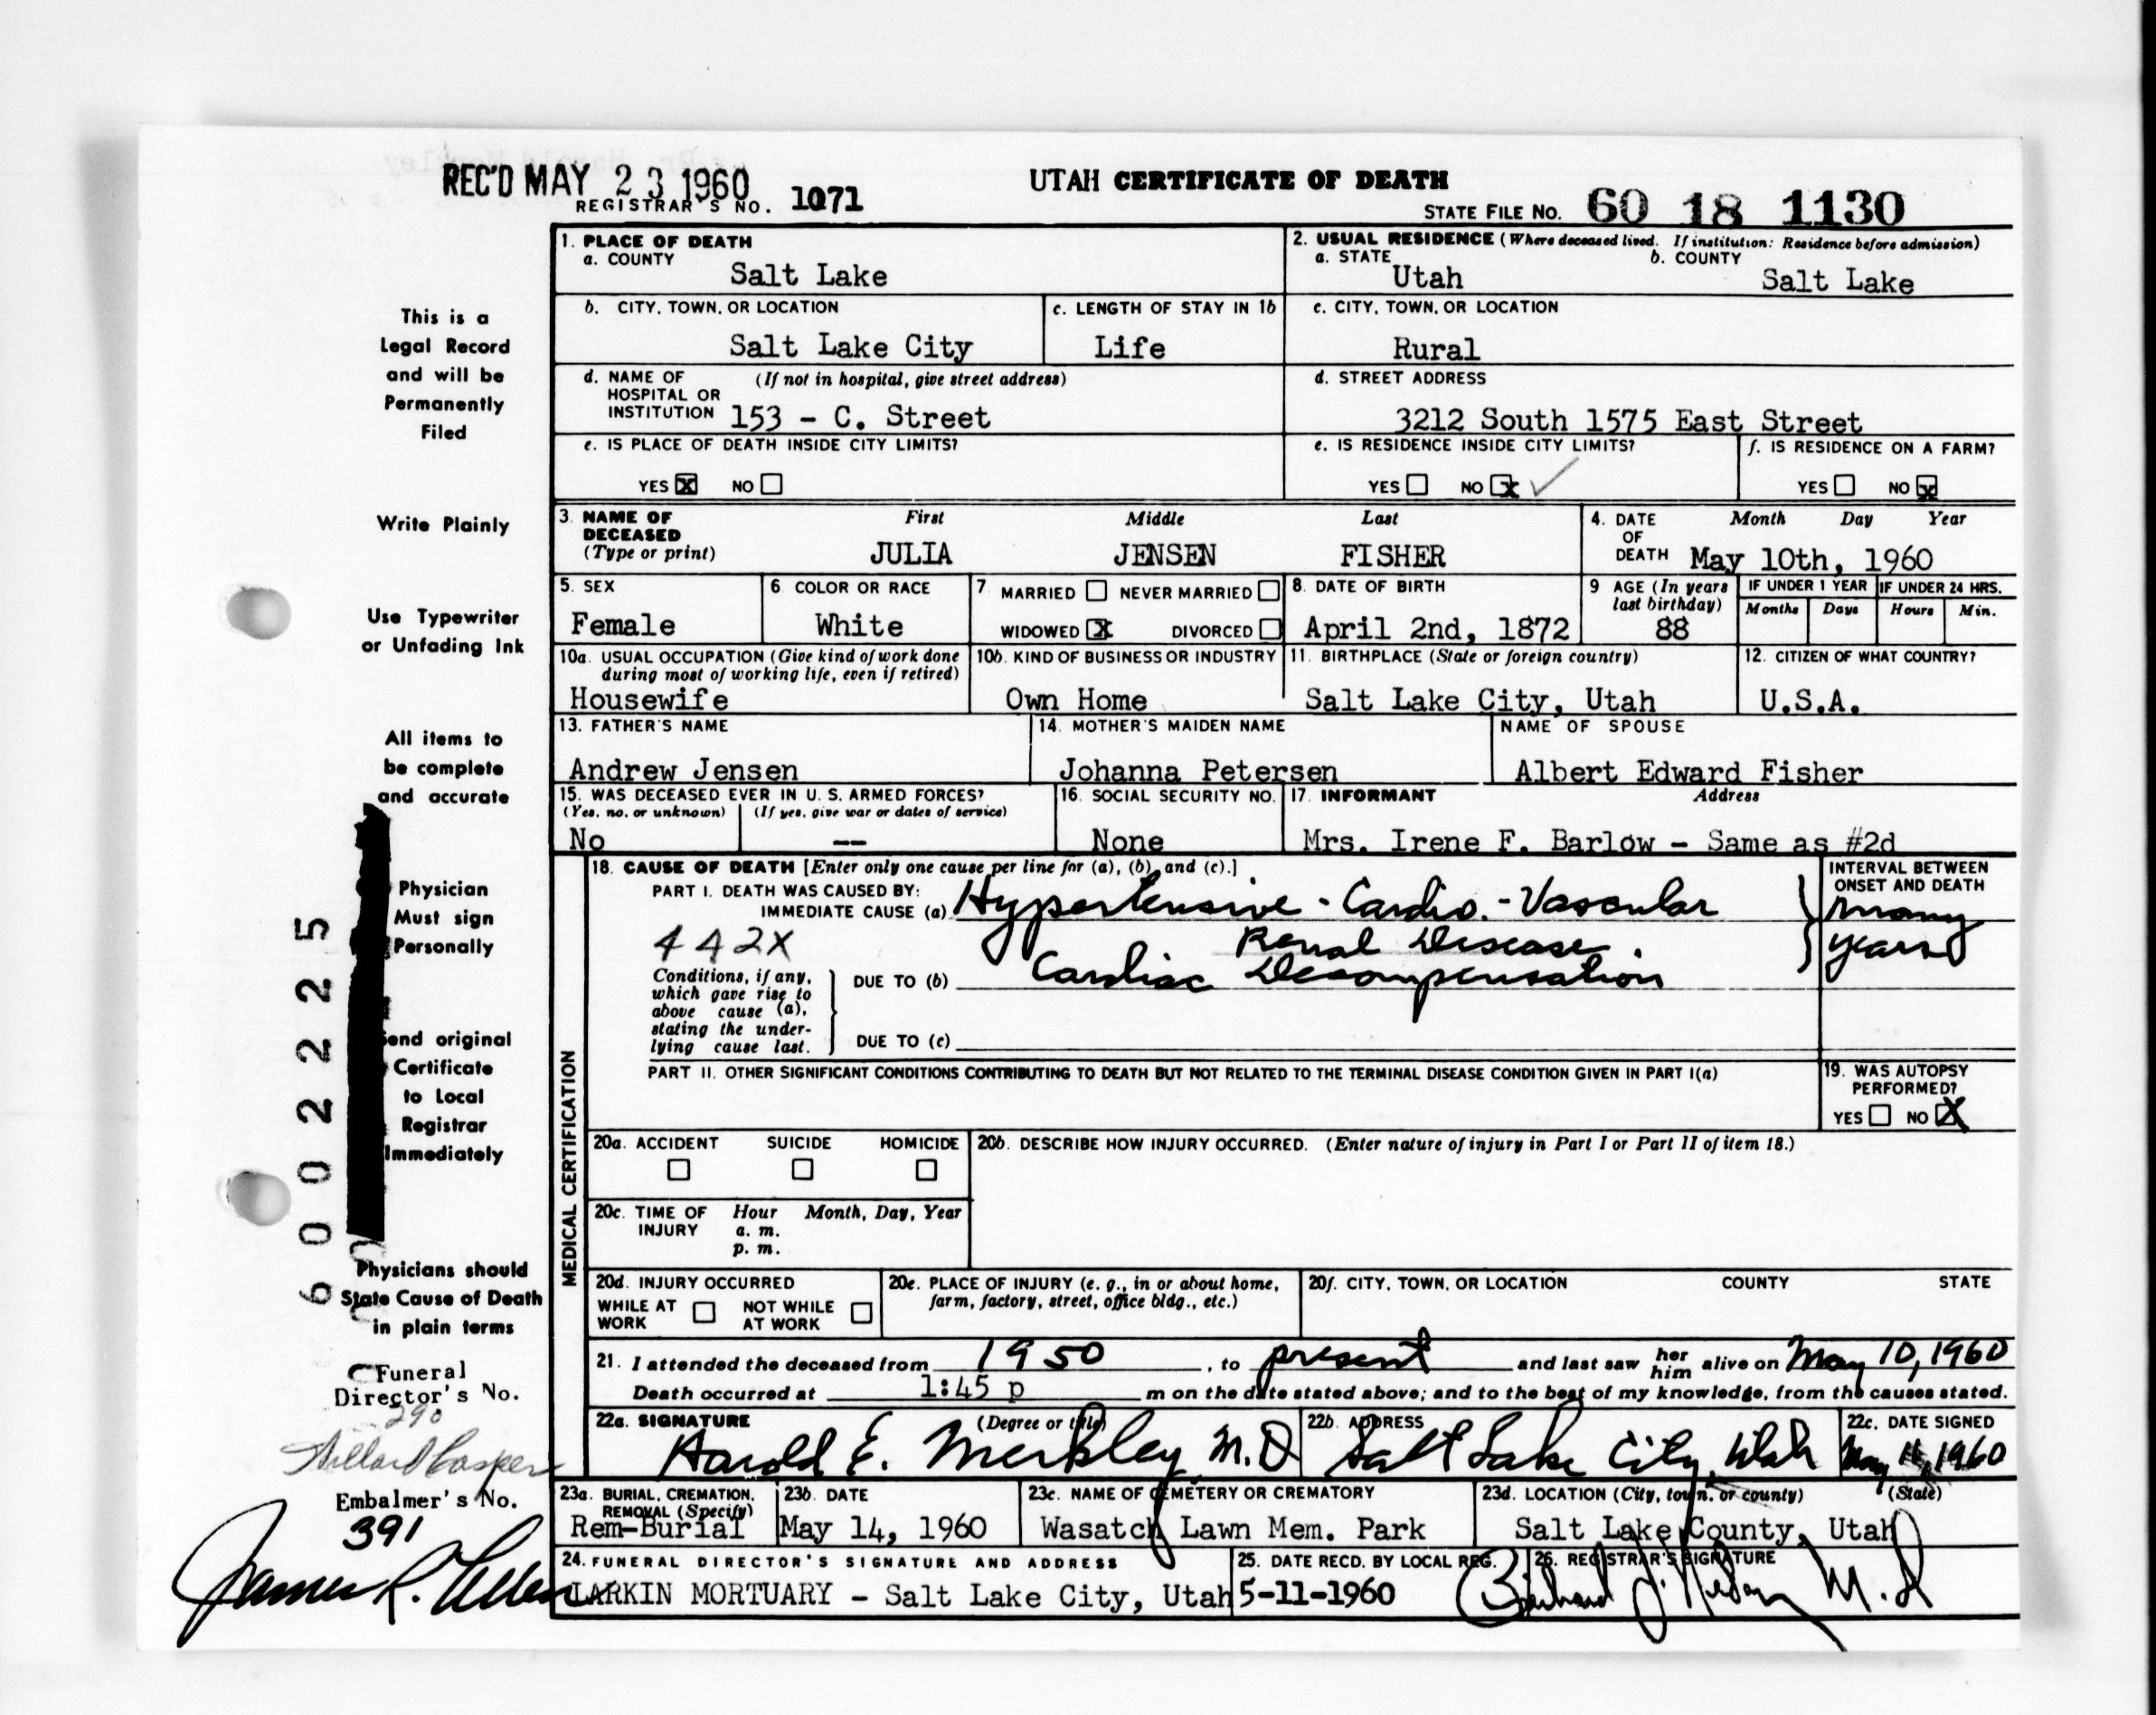 REC'D MAY 23 1960
REGISTRAR'S NO. 1071
UTAH CERTIFICATE OF DEATH
STATE FILE NO. 60 18 1130
This is a
Legal Record
and will be
Permanently
Filed
Write Plainly
Use Typewriter
or Unfading Ink
All items to
be complete
and accurate
Physician
Must sign
Personally
Send original
Certificate
to Local
Registrar
Immediately
Physicians should
State Cause of Death
in plain terms
Funeral
Director's No.
290
Embalmer's No.
391
6 0 0 2 2 2 5
1. PLACE OF DEATH
a. COUNTY
Salt Lake
2. USUAL RESIDENCE (Where deceased lived. If institution: Residence before admission)
a. STATE b. COUNTY
Utah Salt Lake
b. CITY, TOWN, OR LOCATION c. LENGTH OF STAY IN 1b c. CITY, TOWN, OR LOCATION
Salt Lake City Life Rural
d. NAME OF (If not in hospital, give street address)
HOSPITAL OR
INSTITUTION 153 - C. Street
d. STREET ADDRESS
3212 South 1575 East Street
e. IS PLACE OF DEATH INSIDE CITY LIMITS?
YES X NO
e. IS RESIDENCE INSIDE CITY LIMITS? f. IS RESIDENCE ON A FARM?
YES NO X YES NO X
3. NAME OF First Middle Last
DECEASED
(Type or print) JULIA JENSEN FISHER
4. DATE Month Day Year
OF
DEATH May 10th, 1960
5. SEX
Female
6 COLOR OR RACE
White
7 MARRIED NEVER MARRIED
WIDOWED X DIVORCED
8. DATE OF BIRTH
April 2nd, 1872
9 AGE (In years
last birthday)
88
IF UNDER 1 YEAR IF UNDER 24 HRS.
Months Days Hours Min.
10a. USUAL OCCUPATION (Give kind of work done
during most of working life, even if retired)
Housewife
10b. KIND OF BUSINESS OR INDUSTRY
Own Home
11. BIRTHPLACE (State or foreign country)
Salt Lake City, Utah
12. CITIZEN OF WHAT COUNTRY?
U.S.A.
13. FATHER'S NAME
Andrew Jensen
14. MOTHER'S MAIDEN NAME
Johanna Petersen
NAME OF SPOUSE
Albert Edward Fisher
15. WAS DECEASED EVER IN U. S. ARMED FORCES?
(Yes, no, or unknown) (If yes, give war or dates of service)
No —
16. SOCIAL SECURITY NO.
None
17. INFORMANT Address
Mrs. Irene F. Barlow - Same as #2d
MEDICAL CERTIFICATION
18. CAUSE OF DEATH [Enter only one cause per line for (a), (b), and (c).]
PART I. DEATH WAS CAUSED BY:
IMMEDIATE CAUSE (a) Hypertensive - Cardio - Vascular
442X Renal Disease
Conditions, if any,
which gave rise to
above cause (a),
stating the under-
lying cause last.
DUE TO (b) Cardiac Decompensation
DUE TO (c)
INTERVAL BETWEEN
ONSET AND DEATH
many
years
PART II. OTHER SIGNIFICANT CONDITIONS CONTRIBUTING TO DEATH BUT NOT RELATED TO THE TERMINAL DISEASE CONDITION GIVEN IN PART I(a)
19. WAS AUTOPSY
PERFORMED?
YES NO X
20a. ACCIDENT SUICIDE HOMICIDE
20b. DESCRIBE HOW INJURY OCCURRED. (Enter nature of injury in Part I or Part II of item 18.)
20c. TIME OF Hour Month, Day, Year
INJURY a. m.
p. m.
20d. INJURY OCCURRED
WHILE AT NOT WHILE
WORK AT WORK
20e. PLACE OF INJURY (e. g., in or about home,
farm, factory, street, office bldg., etc.)
20f. CITY, TOWN, OR LOCATION COUNTY STATE
21. I attended the deceased from 1950, to present and last saw her him alive on May 10, 1960
Death occurred at 1:45 p m on the date stated above; and to the best of my knowledge, from the causes stated.
22a. SIGNATURE (Degree or title)
Harold E. Merkley M.D.
22b. ADDRESS
Salt Lake City, Utah
22c. DATE SIGNED
May 11, 1960
23a. BURIAL, CREMATION,
REMOVAL (Specify)
Rem-Burial
23b. DATE
May 14, 1960
23c. NAME OF CEMETERY OR CREMATORY
Wasatch Lawn Mem. Park
23d. LOCATION (City, town, or county) (State)
Salt Lake County, Utah
24. FUNERAL DIRECTOR'S SIGNATURE AND ADDRESS
LARKIN MORTUARY - Salt Lake City, Utah
25. DATE RECD. BY LOCAL REG.
5-11-1960
26. REGISTRAR'S SIGNATURE
M.D